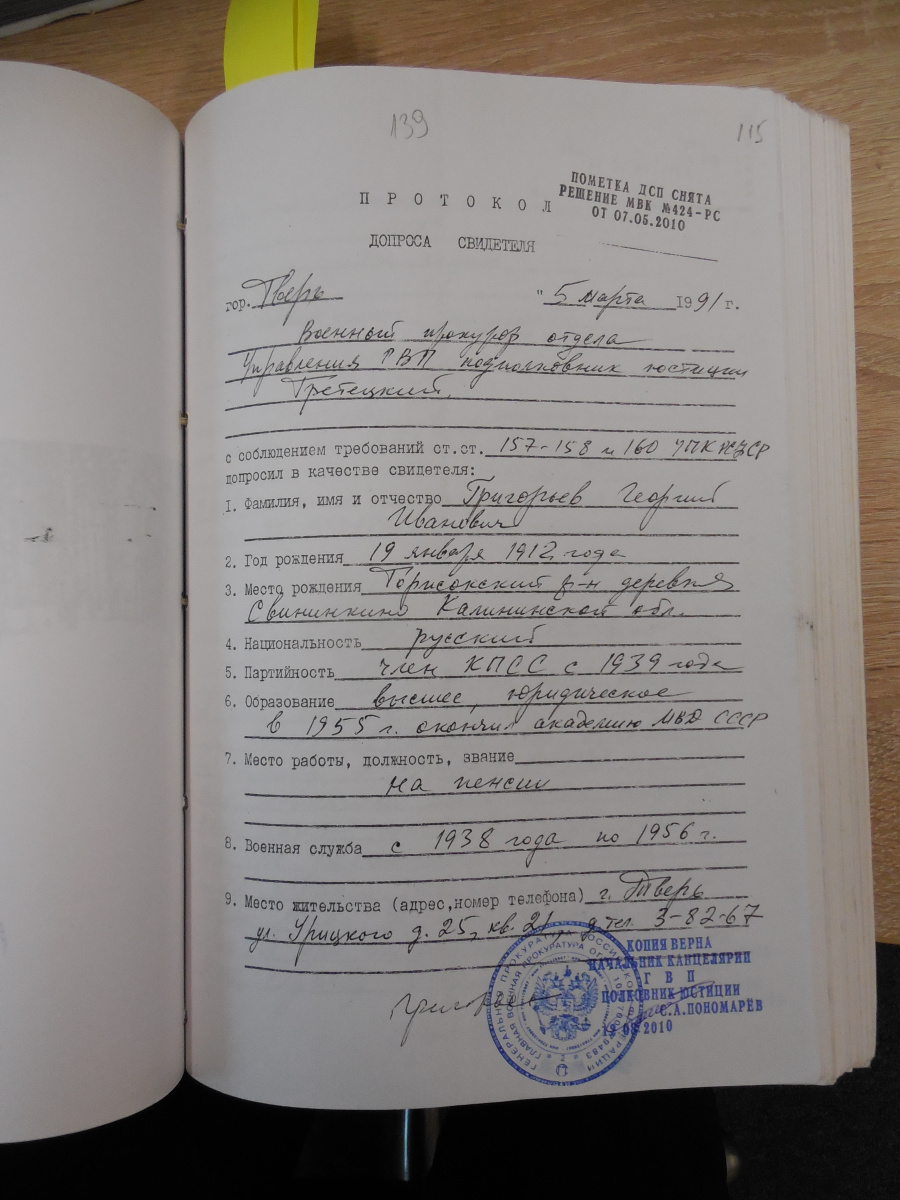 139
115
ПРОТОКОЛ
ПОМЕТКА ДСП СНЯТА
РЕШЕНИЕ МВК №424-РС
ОТ 07.05.2010
ДОПРОСА СВИДЕТЕЛЯ
гор. Тверь "5 марта 1991 г.
Военный прокурор отдела
Управления ГВП подполковник юстиции
Третецкий.
с соблюдением требований ст.ст. 157-158 и 160 УПК РСФСР
допросил в качестве свидетеля:
1. Фамилия, имя и отчество Григорьев Георгий
Иванович
2. Год рождения 19 января 1912 года
3. Место рождения р-н деревня
Свининкино Калининской обл.
4. Национальность русский
5. Партийность член КПСС с 1939 года
6. Образование высшее, юридическое
в 1955 г. окончил академию МВД СССР
7. Место работы, должность, звание
на пенсии
8. Военная служба с 1938 года по 1956 г.
9. Место жительства (адрес,номер телефона) г. Тверь
ул. Урицкого д. 25, кв. 21, д. тел. 3-82-67
Григорьев
КОПИЯ ВЕРНА
НАЧАЛЬНИК КАНЦЕЛЯРИИ
ГВП
ПОЛКОВНИК ЮСТИЦИИ
С.А.ПОНОМАРЁВ
19 08 2010
ГЕНЕРАЛЬНАЯ ПРОКУРАТУРА РОССИЙСКОЙ ФЕДЕРАЦИИ
ГЛАВНАЯ ВОЕННАЯ ПРОКУРАТУРА